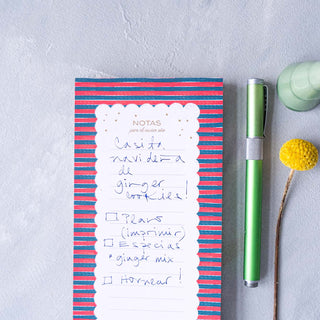 NOTAS
Casita
navideña
de
ginger
cookies!
Plano
(imprimir)
Especias
*ginger mix
Hornear!